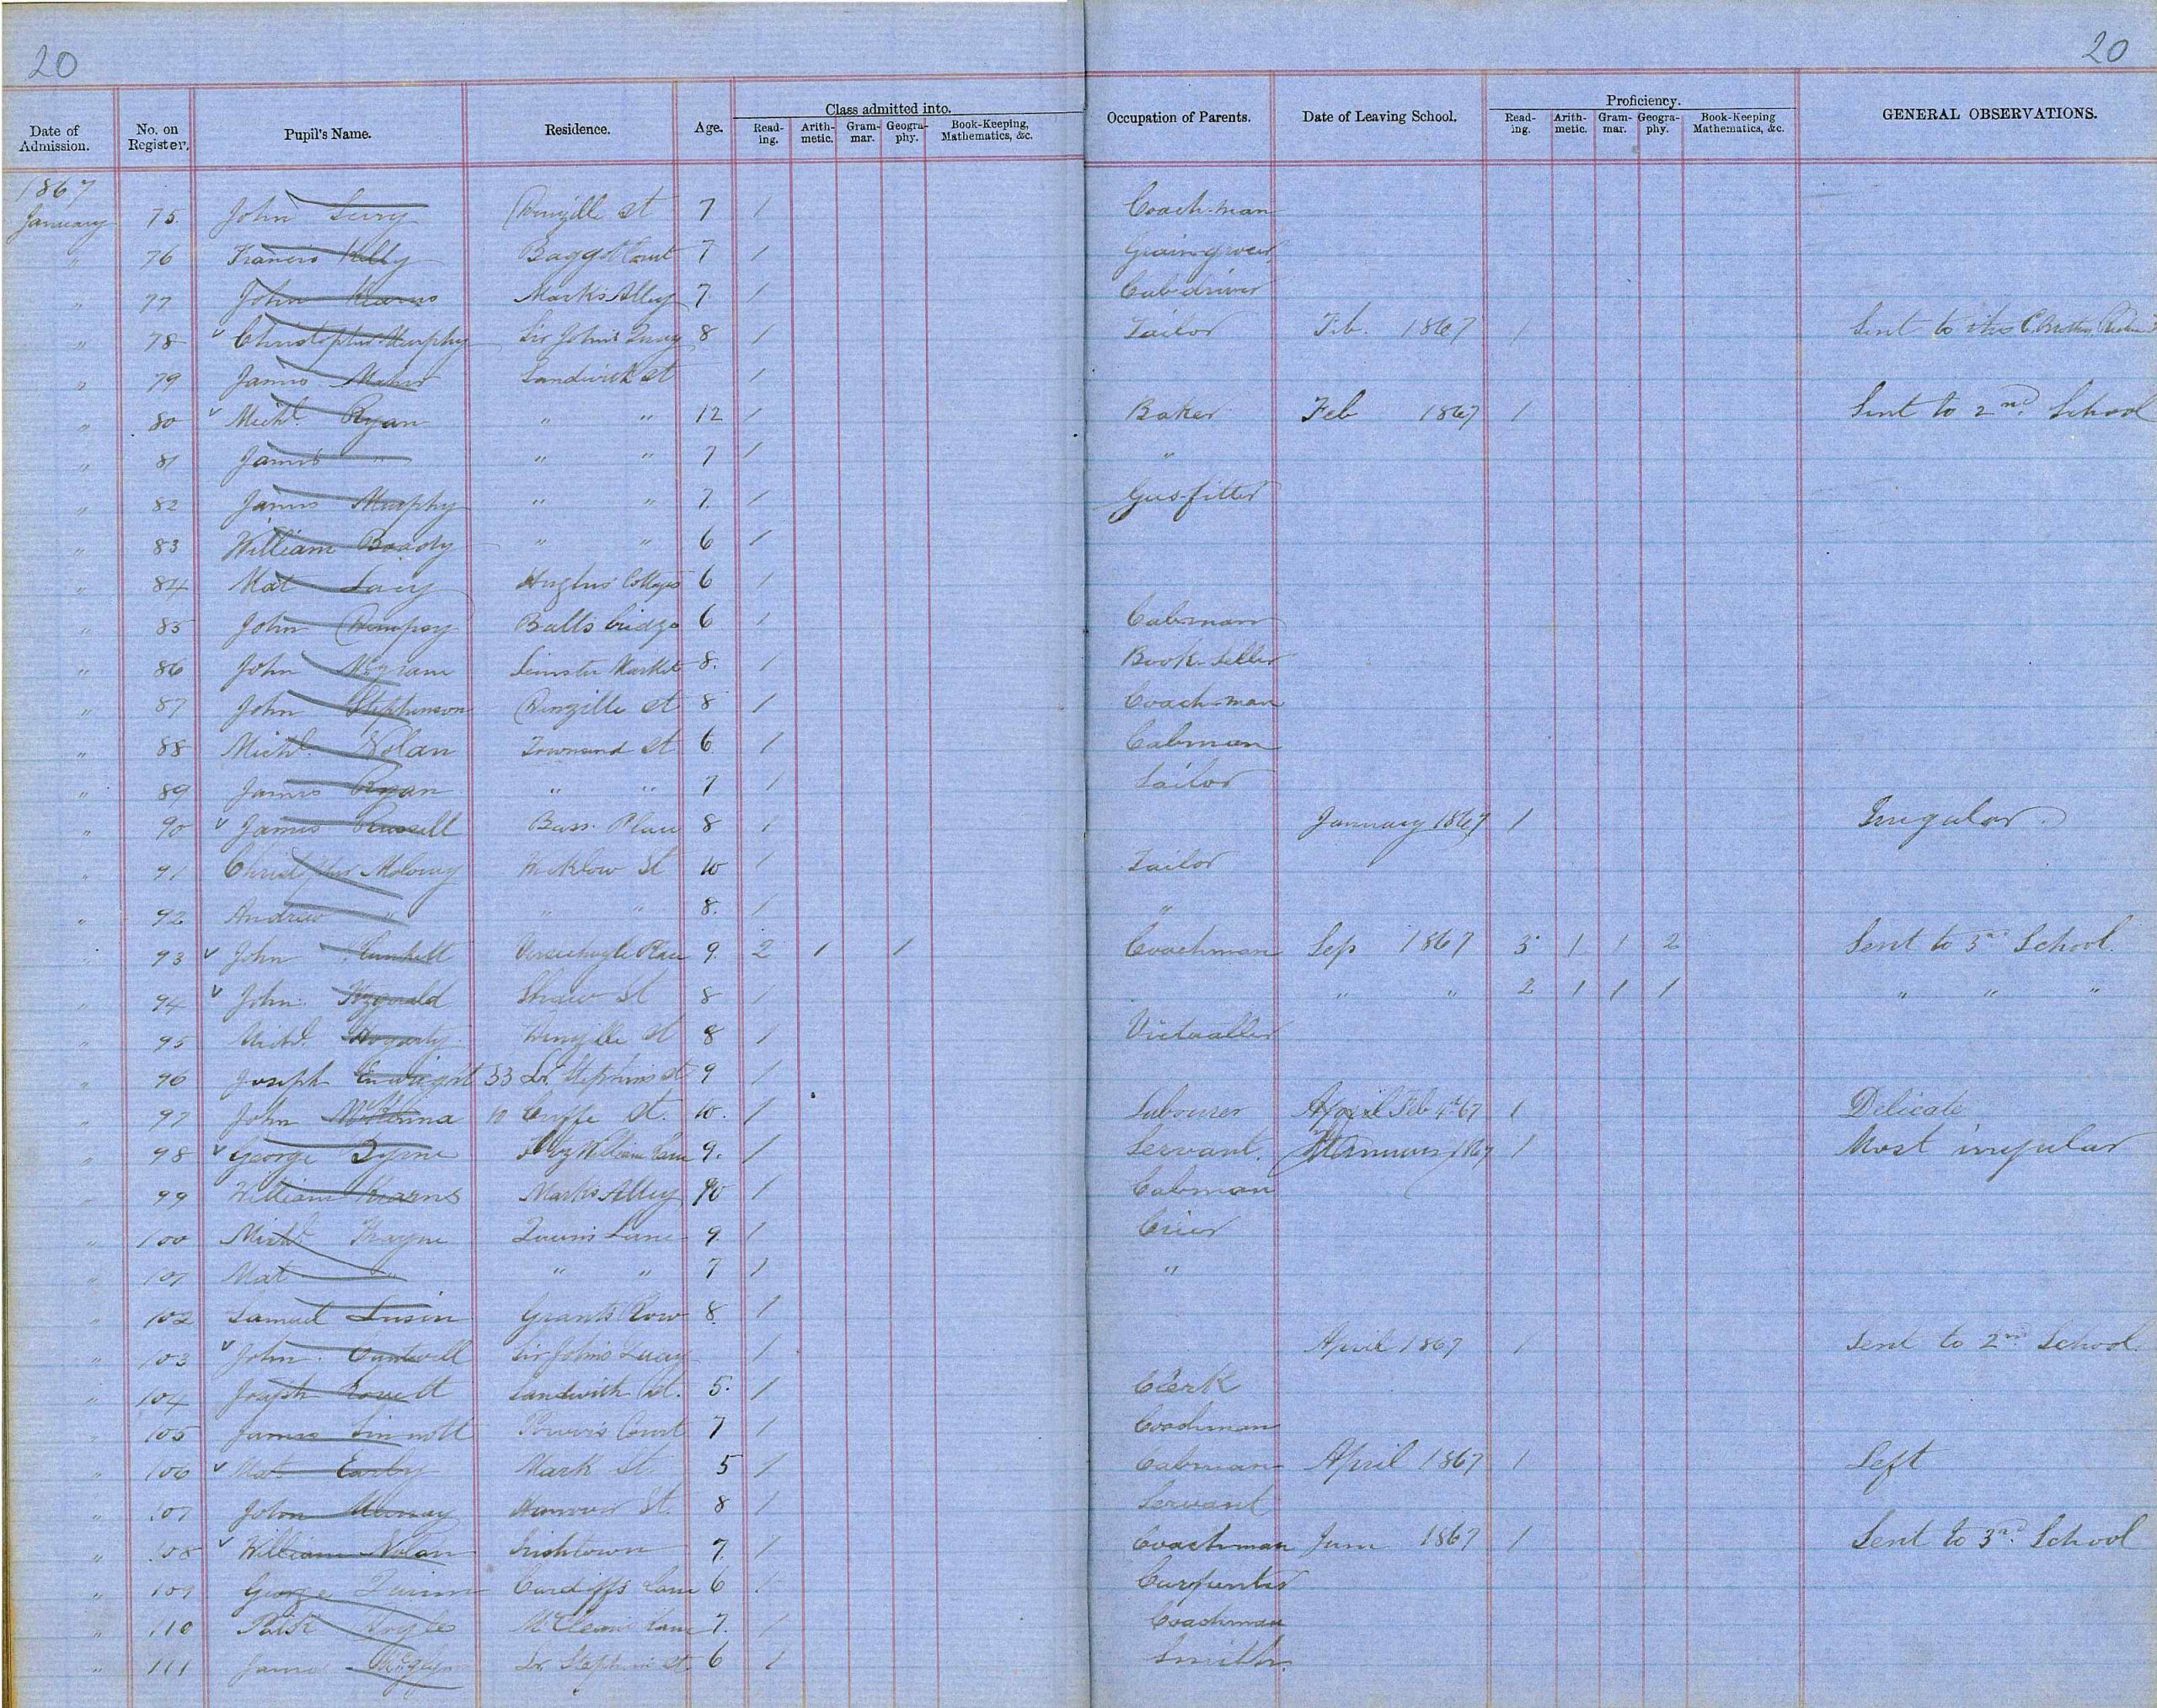 20 20
Class admitted into. Proficiency.
Date of Admission. No. on Register. Pupil's Name. Residence. Age. Read-ing. Arith-metic. Gram-mar. Geogra-phy. Book-Keeping, Mathematics, &c. Occupation of Parents. Date of Leaving School. Read-ing. Arith-metic. Gram-mar. Geogra-phy. Book-Keeping Mathematics, &c. GENERAL OBSERVATIONS.
1867
January 75 John Denzille St 7 1 Coach-man
" 76 Francis Kelly Baggot Court 7 1
" 77 John Kearns Mark's Alley 7 1 Cab-driver
" 78 Christopher Murphy Sir John's Quay 8 1 Tailor Feb. 1867 1 Sent to the C. Brothers
" 79 James Sandwick St 1
" 80 Michl. Ryan " " 12 1 Baker Feb 1867 1 Sent to 2nd. School
" 81 James " " " 7 1 "
" 82 James Murphy " " 7. 1 Gas-fitter
" 83 William Brady " " 6 1
" 84 Mat Lacy Hughes' Cottages 6 1
" 85 John Dempsey Balls bridge 6 1 Cabman
" 86 John Leinster Market 8. 1 Book-seller
" 87 John Stephenson Denzille St 8 1 Coach-man
" 88 Michl. Nolan Townsend St 6 1 Cabman
" 89 James Ryan " " 7 1 Tailor
" 90 James Russell Bass Place 8 1 January 1867 1 Irregular.
" 91 Christopher Molony Wicklow St 10 1 Tailor
" 92 Andrew " " " 8. 1 "
" 93 John Verschoyle Place 9. 2 1 1 Coachman Sep 1867 3 1 1 2 Sent to 3rd School.
" 94 John Fitzgerald Shaw St 8 1 " " 2 1 1 1 " " "
" 95 Michl. Hogarty Denzille St 8 1 Victualler
" 96 Joseph Enwright 33 Lr. Stephens St 9 1
" 97 John McKenna 10 Cuffe St. 10. 1 Labourer April Feb 4th 67 1 Delicate
" 98 George Byrne Fitz William Lane 9. 1 Servant. 1867 1 Most irregular
" 99 William Kearns Mark's Alley 10 1 Cabman
" 100 Michl Lane 9. 1 Crier
" 101 Mat " " 7 1 "
" 102 Samuel Grants Row 8. 1
" 103 John Cantwell Sir John's Quay 1 April 1867 1 Sent to 2nd School.
" 104 Joseph Sandwith St. 5. 1 Clerk
" 105 James Sinnott Court 7 1 Coachman
" 106 Mat Early Mark St. 5 1 Cabman April 1867 1 Left
" 107 John Murray Hanover St. 8 1 Servant
" 108 William Nolan Irishtown 7. 1 Coachman June 1867 1 Sent to 3rd. School
" 109 George Quinn Cardiffs Lane 6 1 Carpenter
" 110 Patk Doyle McCleans Lane 7. 1 Coachman
" 111 James McGlynn Lr. Stephens St. 6 1 Smith.